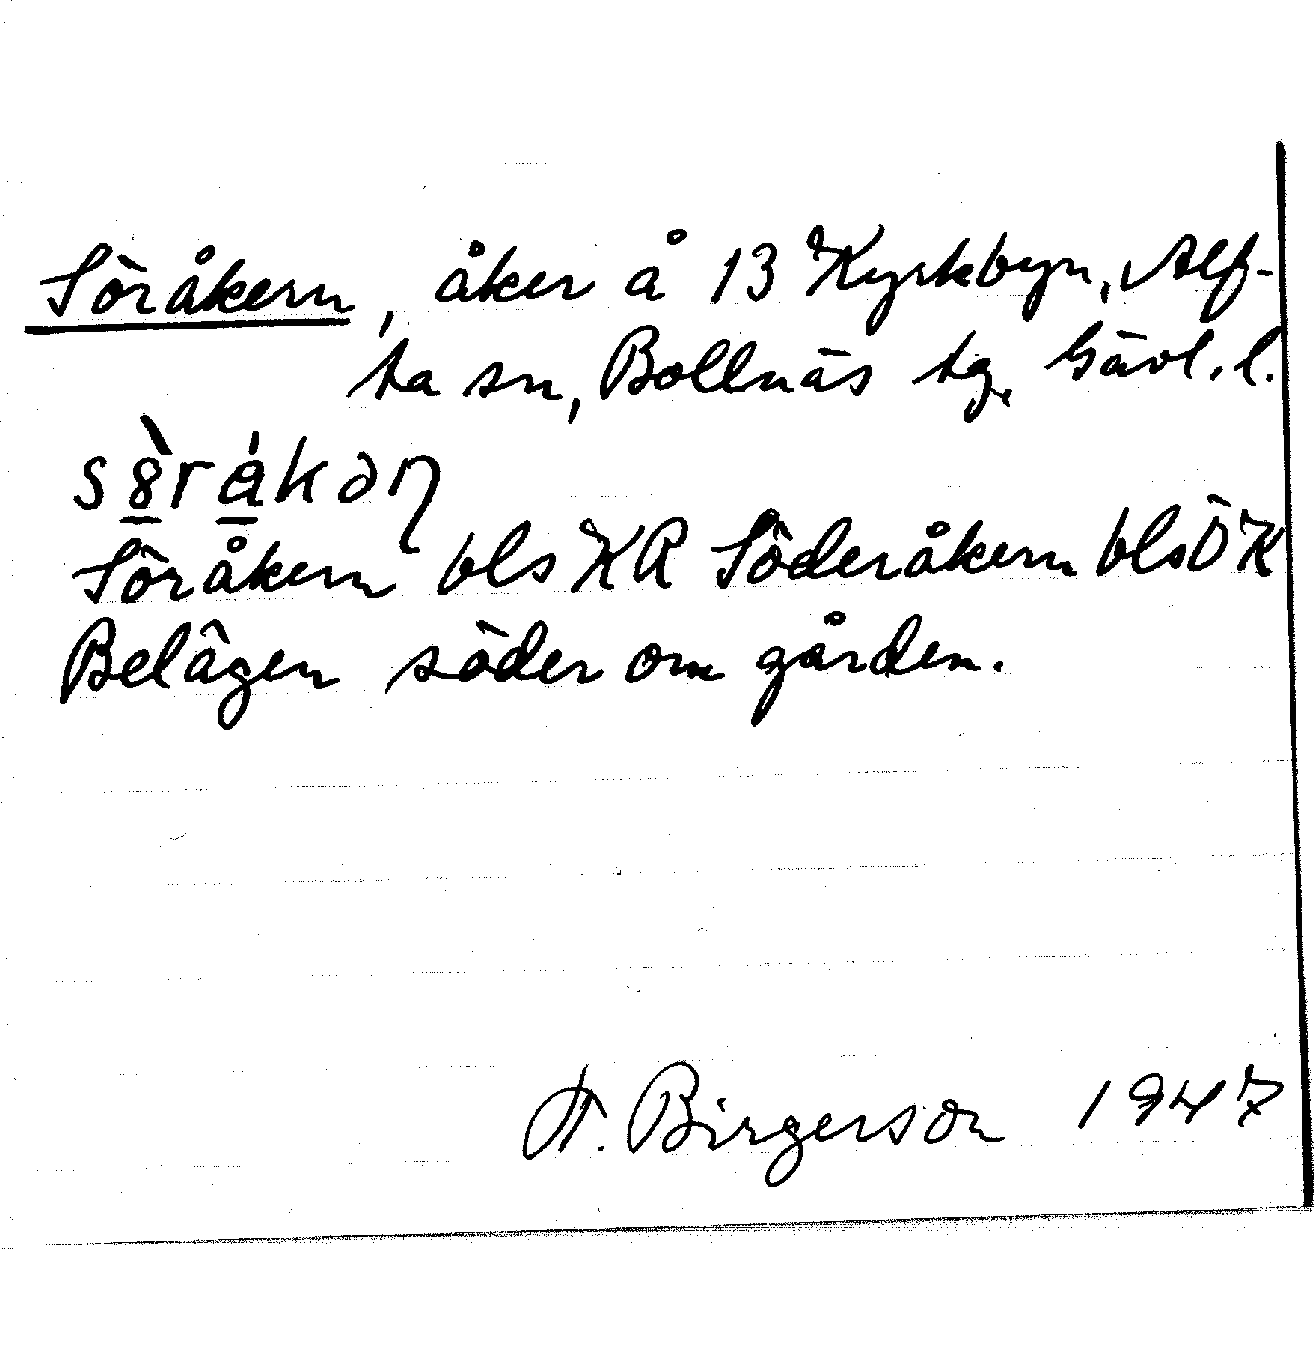 Söråkern, åker å 13 Kyrkbyn, Alf-
ta sn, Bollnäs tg. Gävl. l.
Söråkern bls KR Söderåkern bls ÖK
Belägen söder om gården.
H. Birgerson 1947